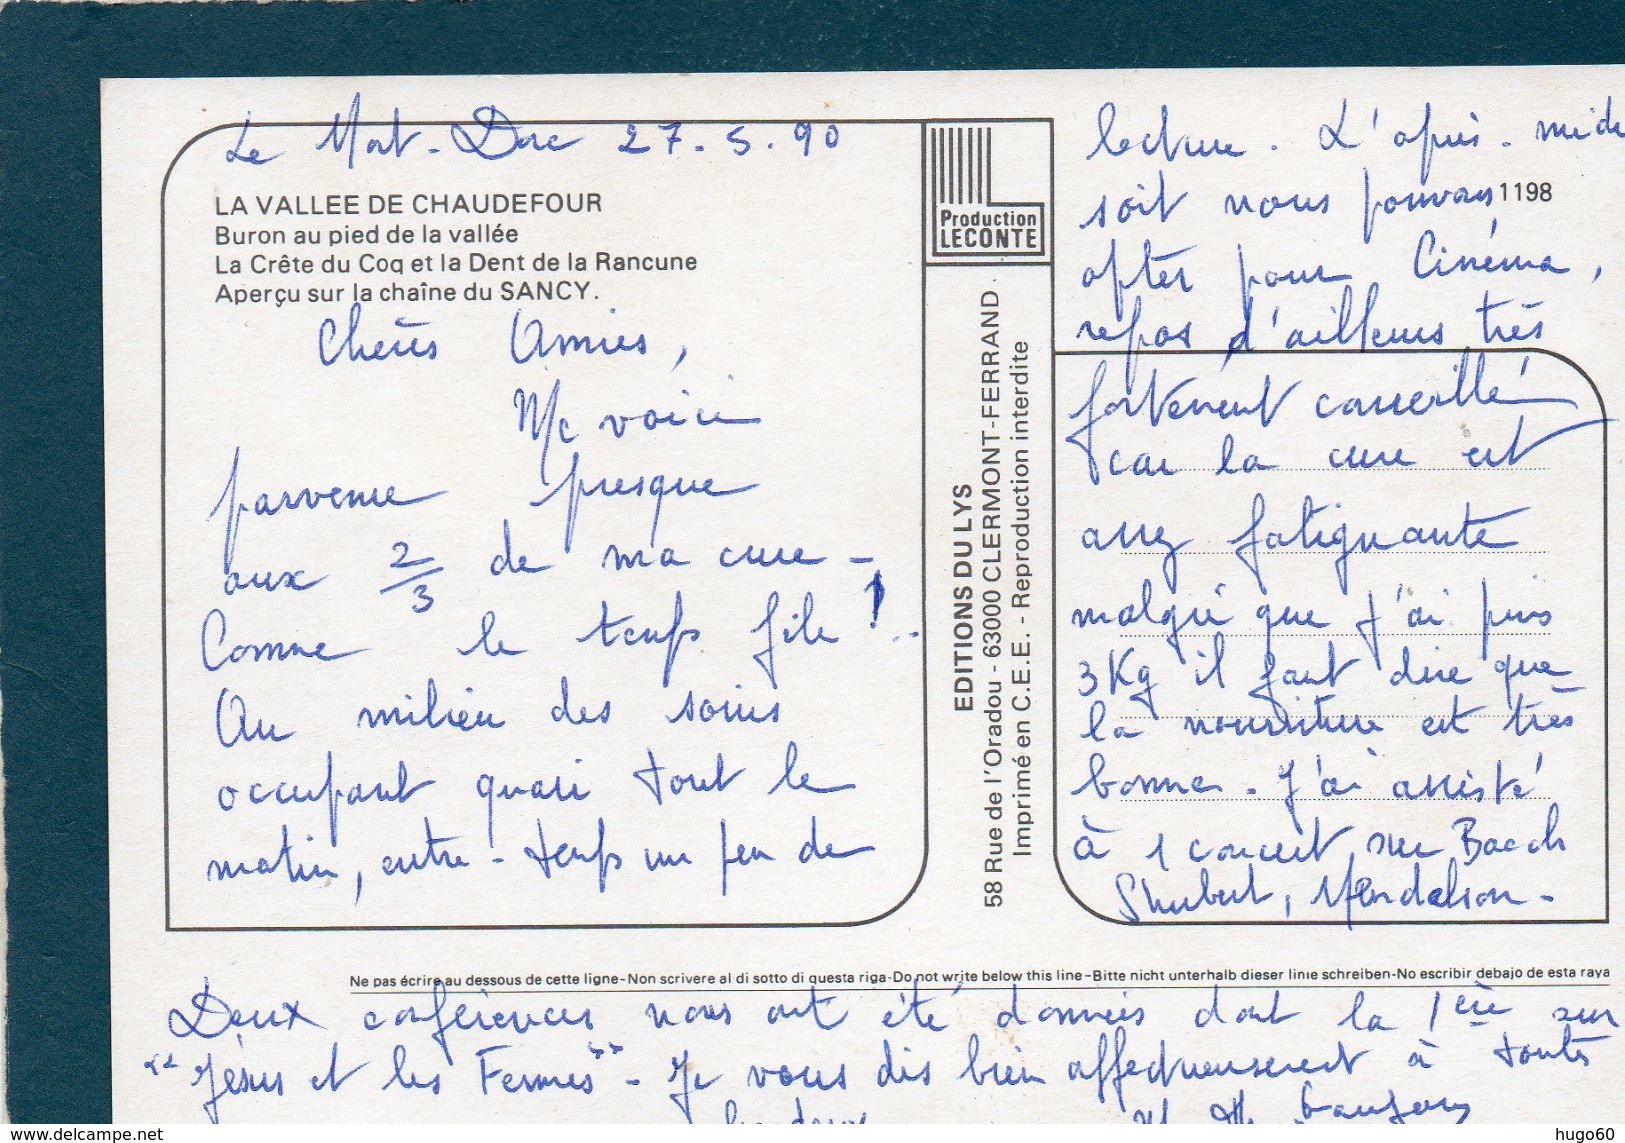 Le Mont-Dore 27.5.90
LA VALLEE DE CHAUDEFOUR
Buron au pied de la vallée
La Crête du Coq et la Dent de la Rancune
Aperçu sur la chaîne du SANCY.
Chères Amies,
Me voici
parvenue presque
aux 2/3 de ma cure -
Comme le temps file !..
Au milieu des soins
occupant quasi tout le
matin, entre-temps un peu de
Production
LECONTE
EDITIONS DU LYS
58 Rue de l'Oradou - 63000 CLERMONT-FERRAND.
Imprimé en C.E.E. - Reproduction interdite
1198
lecture. L'après-midi
soit nous pouvons
opter pour Cinéma,
repos d'ailleurs très
fortement conseillé
car la cure est
assez fatiguante
malgré que j'ai pris
3Kg il faut dire que
la nourriture est très
bonne. J'ai assisté
à 1 concert sur Bach
Shubert, Mendelson -
Ne pas écrire au dessous de cette ligne-Non scrivere al di sotto di questa riga-Do not write below this line-Bitte nicht unterhalb dieser linie schreiben-No escribir debajo de esta raya
Deux conférences nous ont été données dont la 1ère sur
"Jésus et les Femmes" - Je vous dis bien affectueusement à toutes
les deux
hugo60
www.delcampe.net